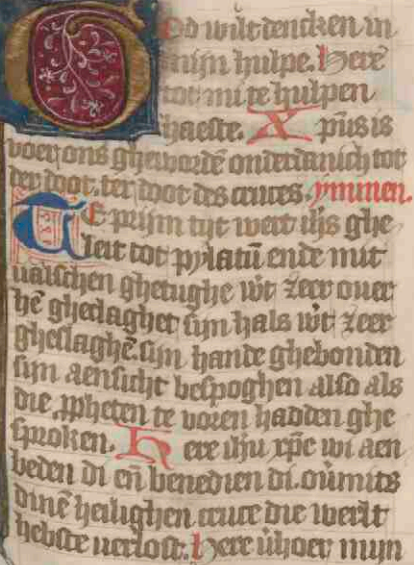 God wilt dencken in
mijn hulpe. Here
tot mi te hulpen
haeste. Xpūs is
voer ons gheworde onderdanich tot
ter doot. ter doot des cruces. ymmen.
Te prijm tijt wert ihs ghe
leit tot pylatū ende mit
valschen ghetughe wt zeer ouer
hē ghedaghet sijn hals wt zeer
gheslaghē. sijn hande ghebonden
sijn aensicht bespoghen also als
die ꝓpheten te voren hadden ghe
sproken. Here ihū xp̄e wi aen
beden di eñ benedien di. oūmits
dinē heilighen cruce die werlt
hebste verlost. Here v̄hoer mijn